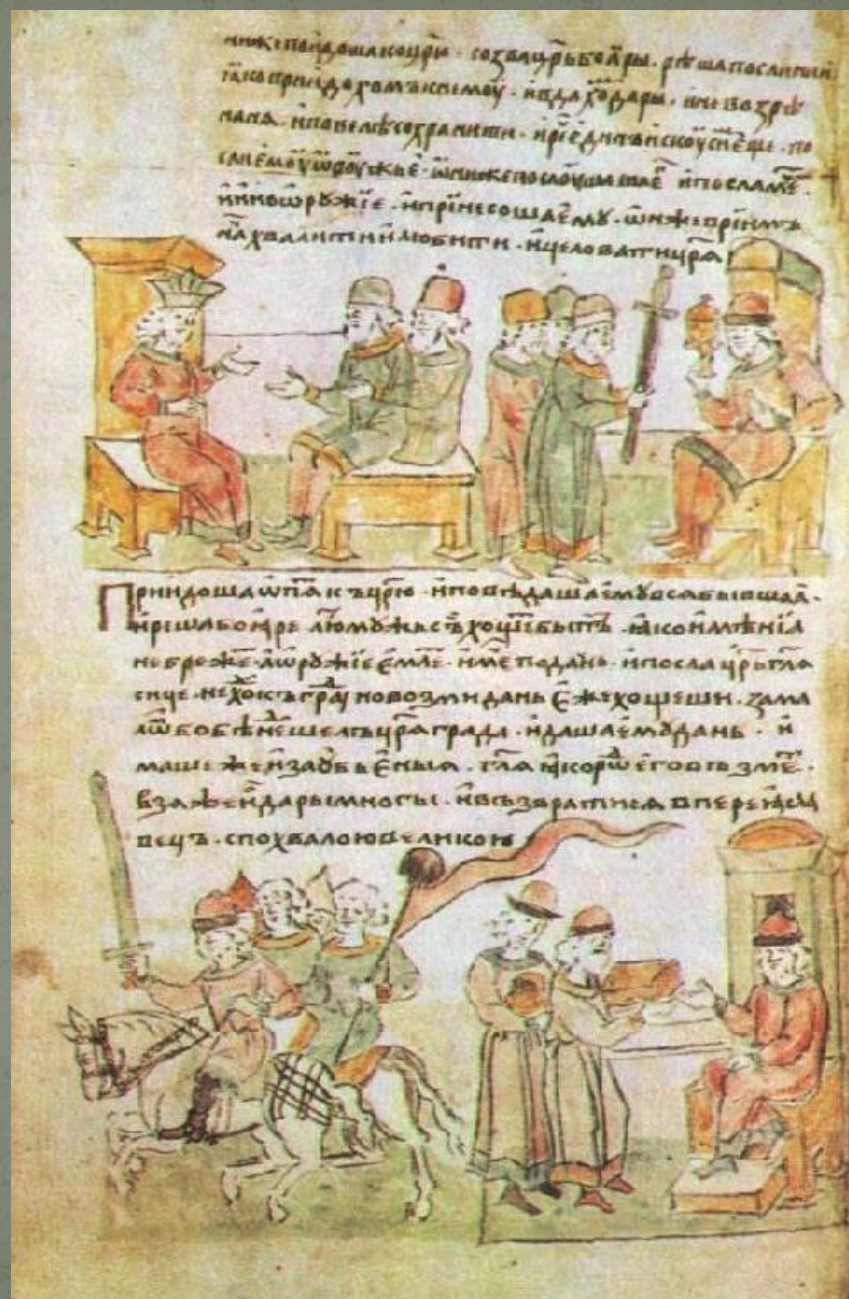 ниже поидоша коцр҃ю · созва цр҃ь боꙗры · рѣша послании
ꙗко приидохомъ к немоу · и вдахо҃ дары · и не возрѣ
на нѧ · и повелѣ сохранити · и рече҃ единъ искоуси еще · по
сли емоу ѿроужье · ѡни же послоушавше҃ и послаше҃
ино ѡружїе · и принесоша ему · ѡн же приимъ
нача҃ хвалити и любити · и целовати цр҃ѧ
Приидоша ѡпѧ҃ къ црю҃ · и поведаша ему всѧ бывшаꙗ ·
и рѣша боꙗре лю҃ мужь сь҃ хоще҃ быть · ꙗко имѣнїꙗ
небреже҃ · а ѡружїе емле҃ · имисѧ по дань · и посла цр҃ь гл҃ѧ
сице · не ходи҃ къ град҃у но возми дань еже хощеши · за мало
бо бѣ не҃ шелъ цр҃ѧграда · и даша ему дань · и
маше же и за убьеныꙗ · гл҃ѧ ꙗко ро҃ его возме҃ ·
взѧ же и дары многы · и възвратисѧ в переꙗсла
вець · с похвалою великою